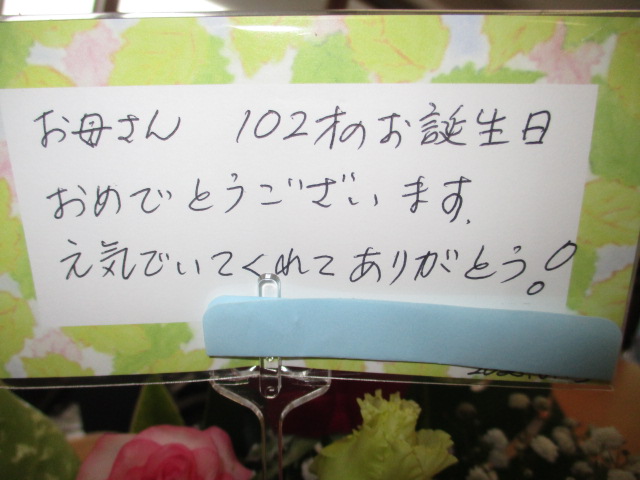 お母さん 102才のお誕生日
おめでとうございます.
え気でいてくれてありがとう!